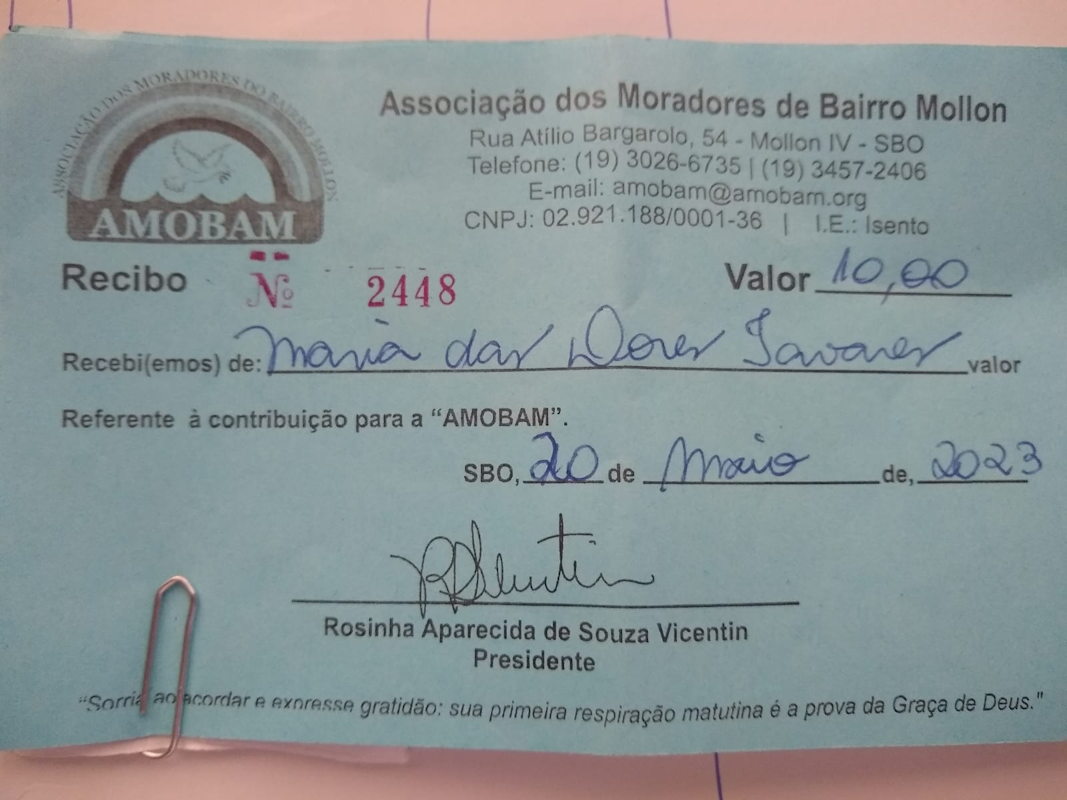 ASSOCIAÇÃO DOS MORADORES DO BAIRRO MOLLON
AMOBAM
Associação dos Moradores de Bairro Mollon
Rua Atílio Bargarolo, 54 - Mollon IV - SBO
Telefone: (19) 3026-6735 | (19) 3457-2406
E-mail: amobam@amobam.org
CNPJ: 02.921.188/0001-36 | I.E.: Isento
Recibo Nº 2448 Valor 10,00
Recebi(emos) de: Maria das Dores Tavares valor
Referente à contribuição para a “AMOBAM”.
SBO, 20 de Maio de, 2023
Rosinha Aparecida de Souza Vicentin
Presidente
“Sorria ao acordar e expresse gratidão: sua primeira respiração matutina é a prova da Graça de Deus."